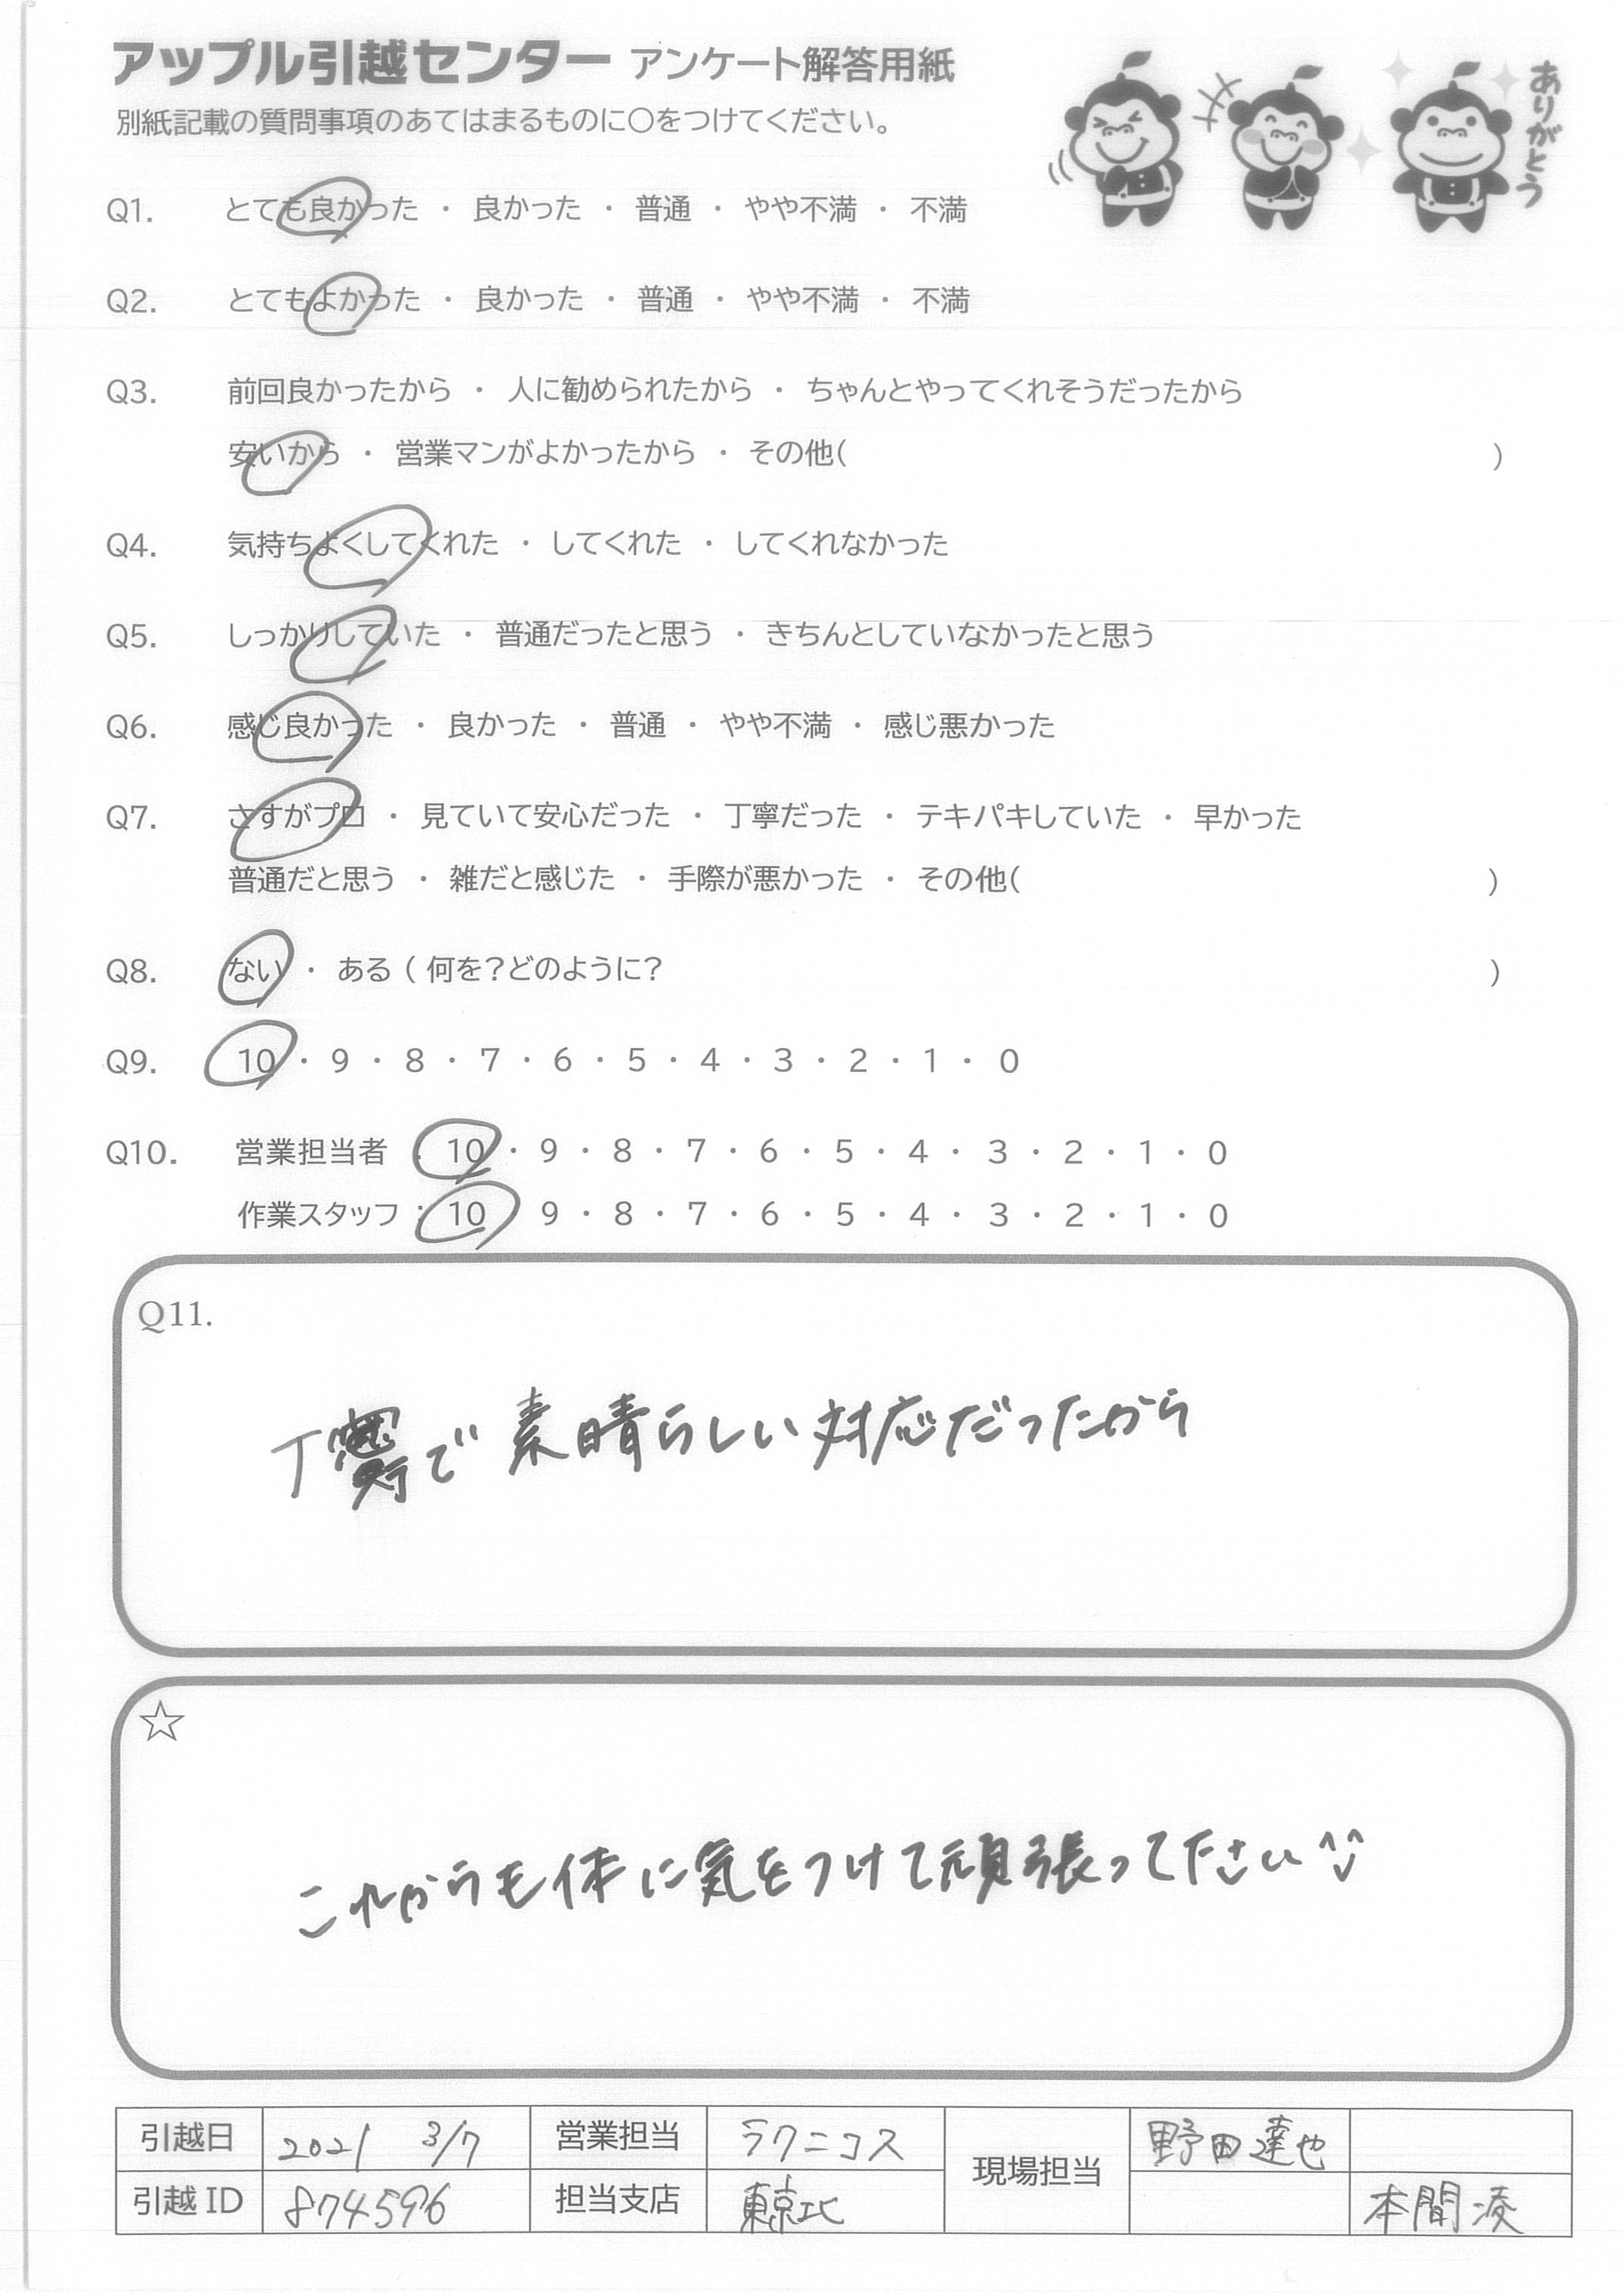 アップル引越センター アンケート解答用紙
ありがとう
別紙記載の質問事項のあてはまるものに○をつけてください。
Q1. とても良かった ・ 良かった ・ 普通 ・ やや不満 ・ 不満
Q2. とてもよかった ・ 良かった ・ 普通 ・ やや不満 ・ 不満
Q3. 前回良かったから ・ 人に勧められたから ・ ちゃんとやってくれそうだったから
安いから ・ 営業マンがよかったから ・ その他( )
Q4. 気持ちよくしてくれた ・ してくれた ・ してくれなかった
Q5. しっかりしていた ・ 普通だったと思う ・ きちんとしていなかったと思う
Q6. 感じ良かった ・ 良かった ・ 普通 ・ やや不満 ・ 感じ悪かった
Q7. さすがプロ ・ 見ていて安心だった ・ 丁寧だった ・ テキパキしていた ・ 早かった
普通だと思う ・ 雑だと感じた ・ 手際が悪かった ・ その他( )
Q8. ない ・ ある ( 何を?どのように? )
Q9. 10 ・ 9 ・ 8 ・ 7 ・ 6 ・ 5 ・ 4 ・ 3 ・ 2 ・ 1 ・ 0
Q10. 営業担当者 : 10 ・ 9 ・ 8 ・ 7 ・ 6 ・ 5 ・ 4 ・ 3 ・ 2 ・ 1 ・ 0
作業スタッフ : 10 9 ・ 8 ・ 7 ・ 6 ・ 5 ・ 4 ・ 3 ・ 2 ・ 1 ・ 0
Q11.
丁寧で素晴らしい対応だったから
☆
これからも体に気をつけて頑張って下さい^^
引越日 2021 3/7 営業担当 ラクニコス 現場担当 野田達也
引越ID 874596 担当支店 東京北 本間凌